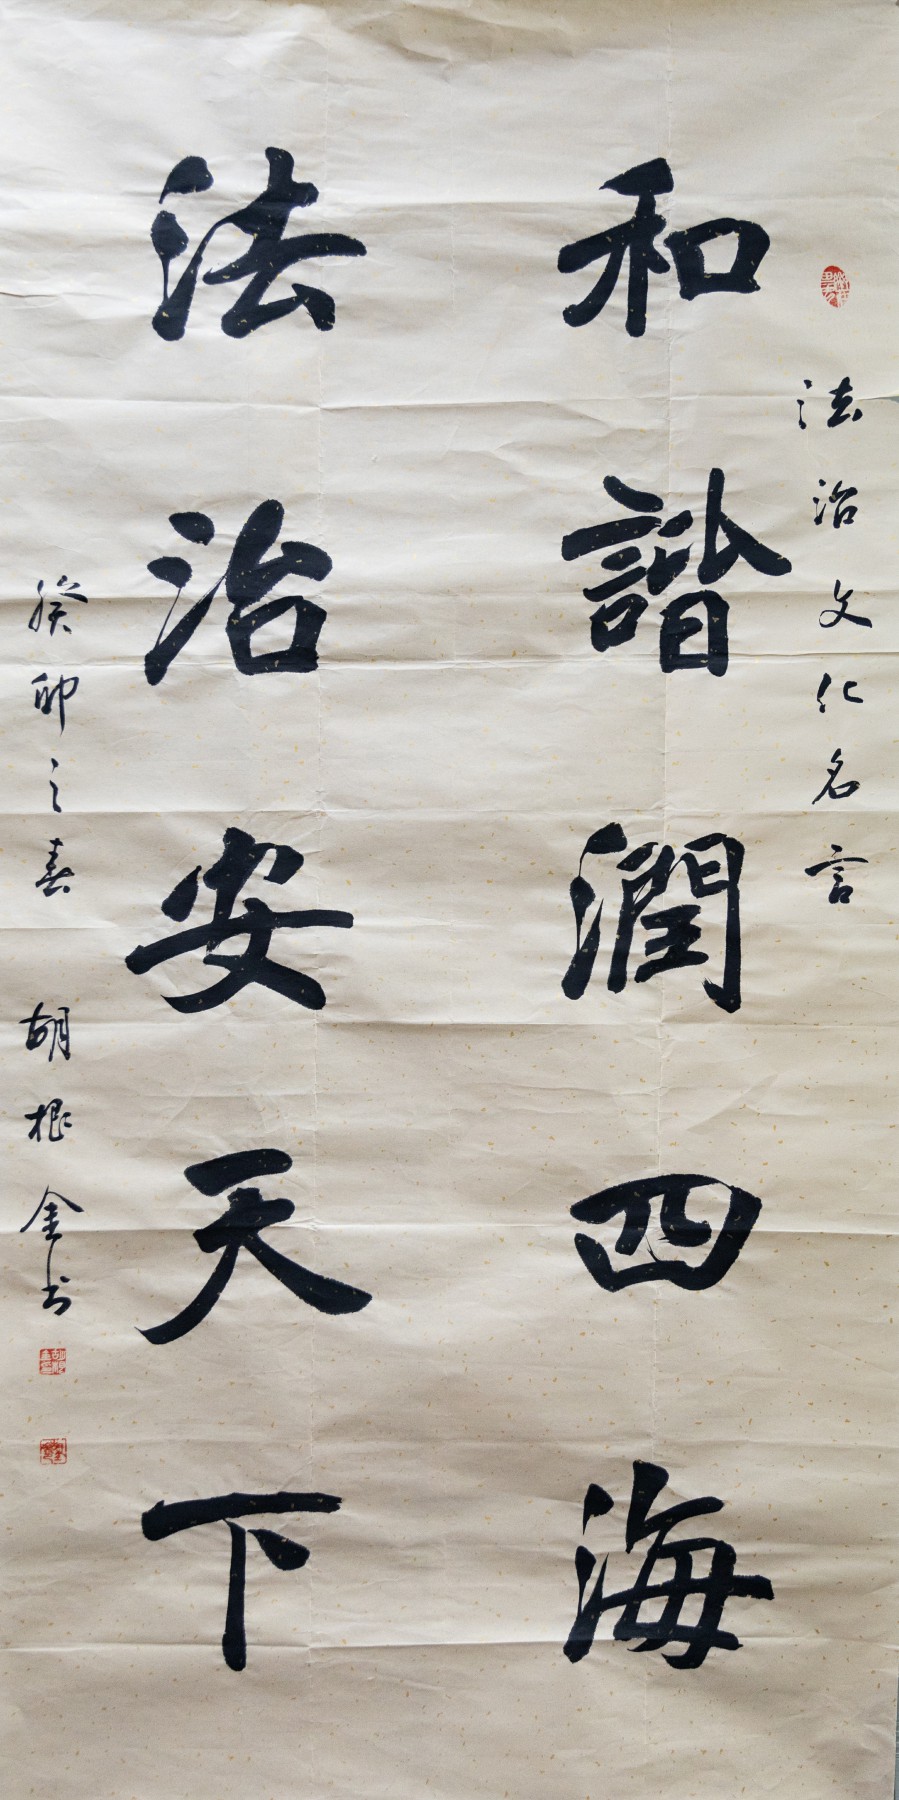 法治文化名言
和諧潤四海
法治安天下
癸卯之春 胡根金书